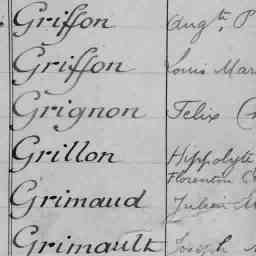 Griffon Augte, P
Griffon Louis Mar
Grignon Felix (
Grillon Hippolyte
Florentin
Grimaud Julien
Grimault Joseph